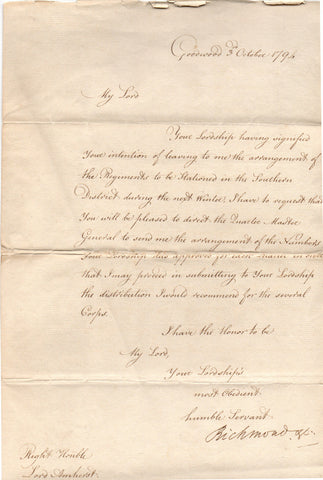 Goodwood 3d October 1794
My Lord
Your Lordship having signified
Your intention of leaving to me the arrangement of
the Regiments to be Stationed in the Southern
District during the next Winter I have to request that
You will be pleased to direct the Quarter Master
General to send me the arrangement of the Numbers
Your Lordship has approved for each Quarter in order
that I may proceed in submitting to Your Lordship
the distribution I would recommend for the several
Corps.
I have the Honor to be
My Lord,
Your Lordship's
most Obedient
humble Servant
Richmond &c.
Right Honble
Lord Amherst.